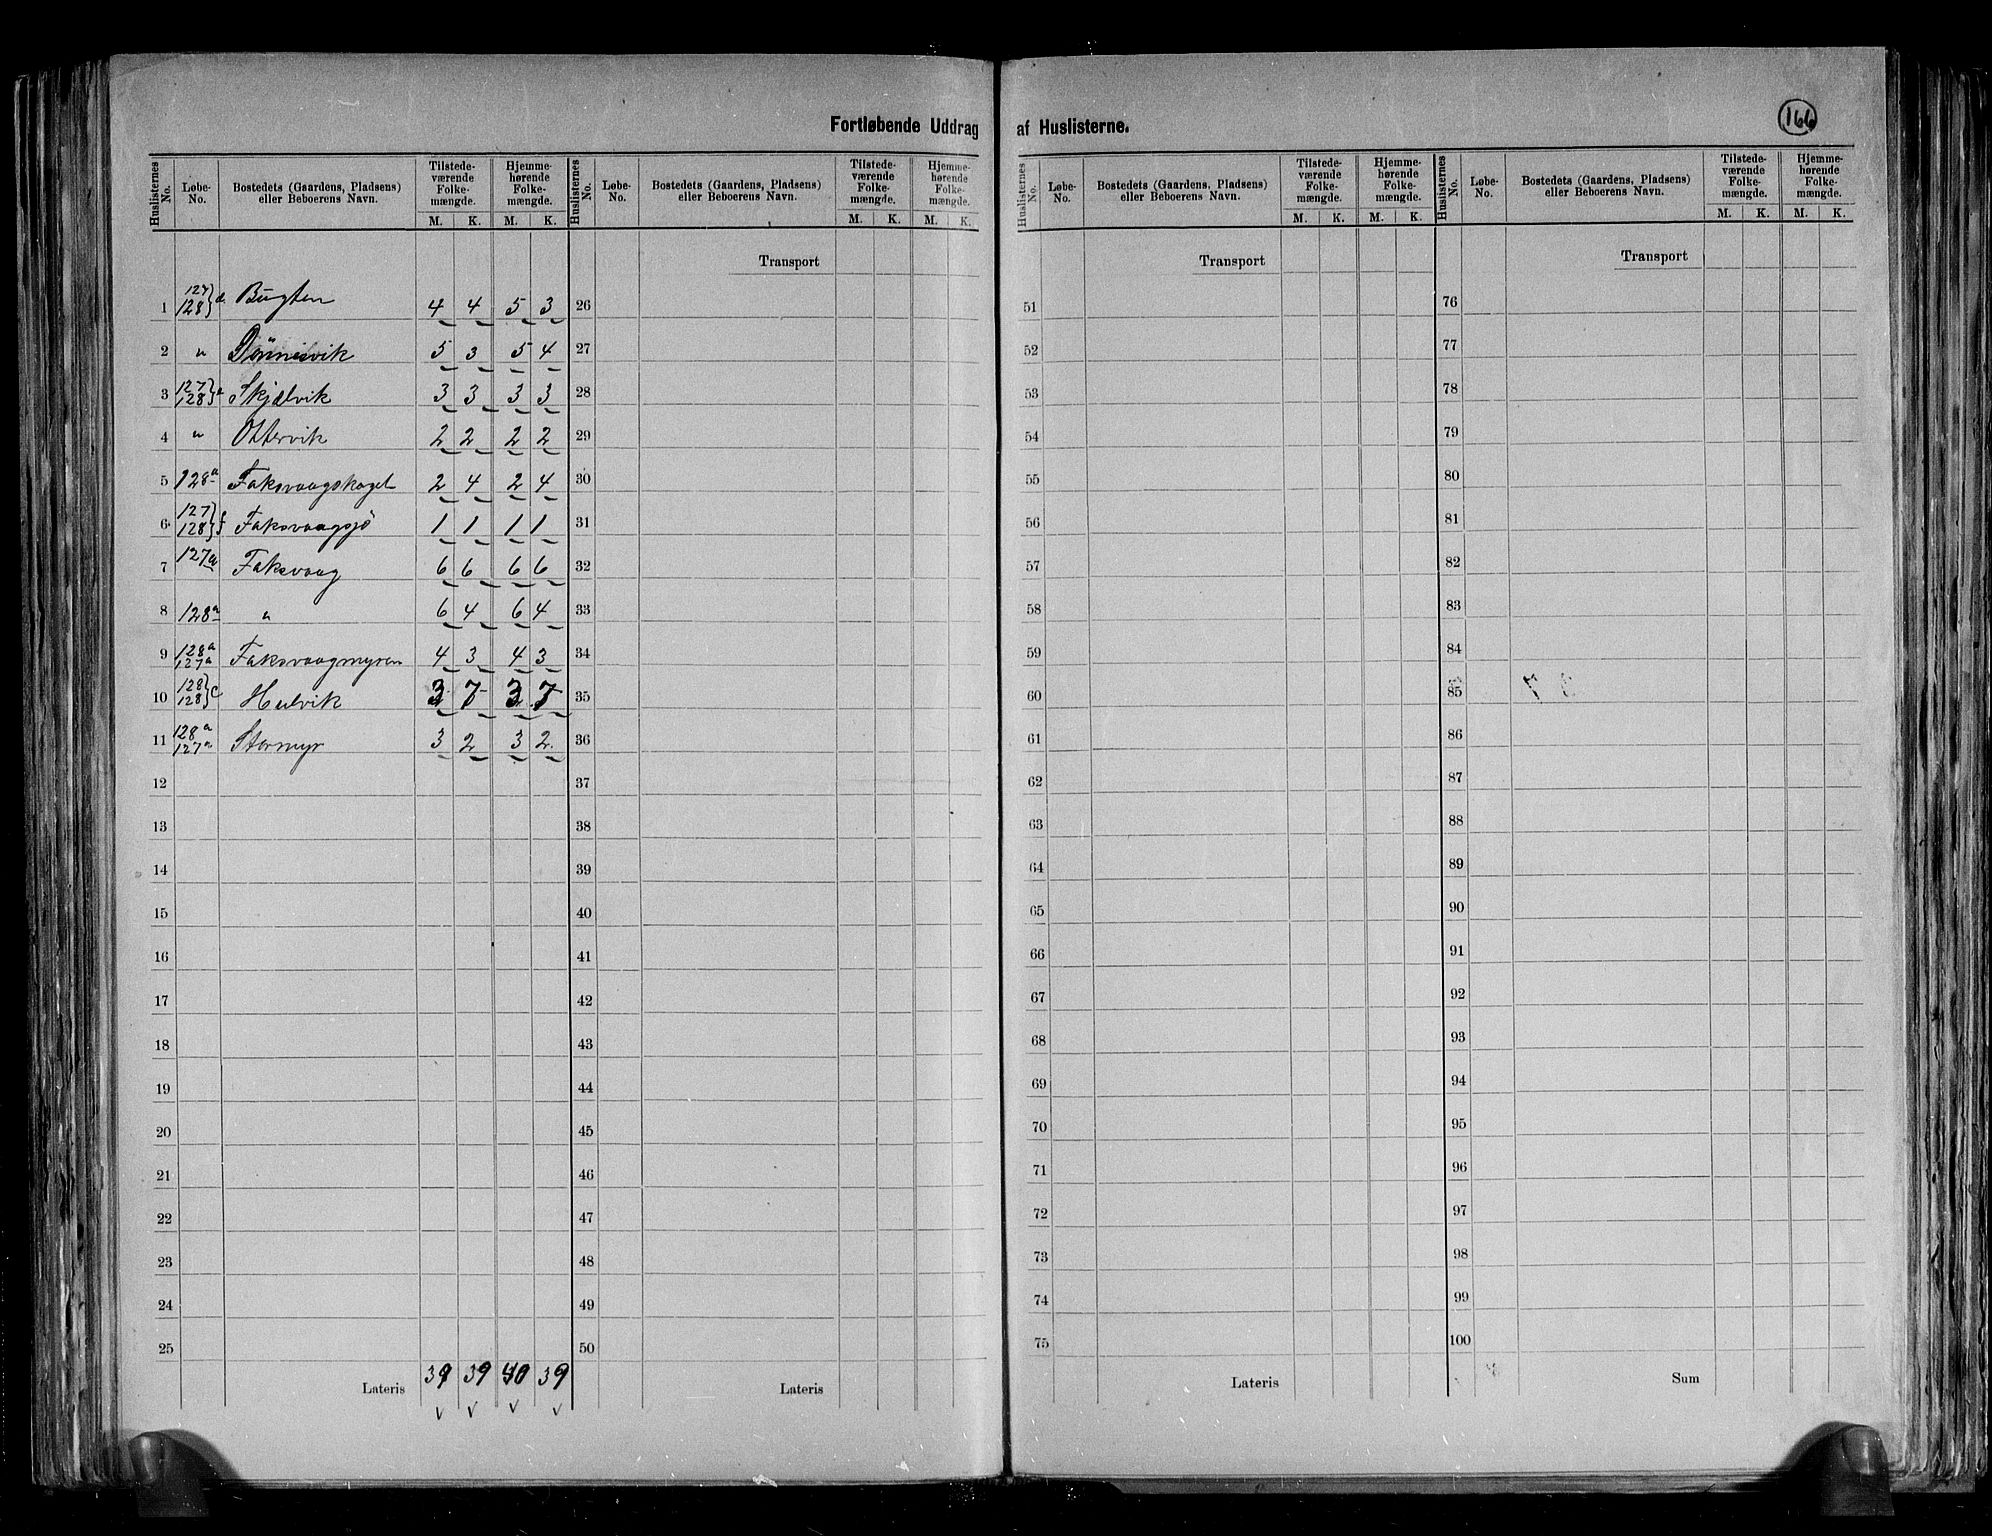 Fortløbende Uddrag af Huslisterne.
166
Huslisternes No. Løbe-No. Bostedets (Gaardens, Pladsen) eller Beboerens Navn. Tilstede-værende Folke-mængde. M. K. Hjemme-hørende Folke-mængde. M. K.
1 127 128 } d. Bugten 4 4 5 3
2 " Dönnesvik 5 3 5 4
3 127 128 } e Skjælvik 3 3 3 3
4 " Ottervik 2 2 2 2
5 128a Faksvaagskaget 2 4 2 4
6 127 128 } f Faksvaagsjö 1 1 1 1
7 127a Faksvaag 6 6 6 6
8 128a " 6 4 6 4
9 128a 127a Faksvaagmyren 4 3 4 3
10 128 128 } c Hulvik 3 7 3 7
11 128a 127a Stormyr 3 2 3 2
12
13
14
15
16
17
18
19
20
21
22
23
24
25
Lateris 39 39 40 39
Huslisternes No. Løbe-No. Bostedets (Gaardens, Pladsen) eller Beboerens Navn. Tilstede-værende Folke-mængde. M. K. Hjemme-hørende Folke-mængde. M. K.
Transport
26
27
28
29
30
31
32
33
34
35
36
37
38
39
40
41
42
43
44
45
46
47
48
49
50
Lateris
Huslisternes No. Løbe-No. Bostedets (Gaardens, Pladsen) eller Beboerens Navn. Tilstede-værende Folke-mængde. M. K. Hjemme-hørende Folke-mængde. M. K.
Transport
51
52
53
54
55
56
57
58
59
60
61
62
63
64
65
66
67
68
69
70
71
72
73
74
75
Lateris
Huslisternes No. Løbe-No. Bostedets (Gaardens, Pladsen) eller Beboerens Navn. Tilstede-værende Folke-mængde. M. K. Hjemme-hørende Folke-mængde. M. K.
Transport
76
77
78
79
80
81
82
83
84
85
86
87
88
89
90
91
92
93
94
95
96
97
98
99
100
Sum